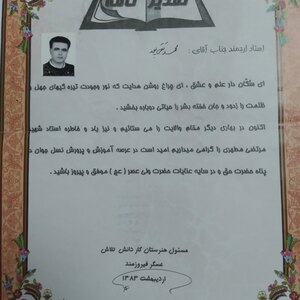 تقدیر نامه
استاد ارجمند جناب آقای :
ای سُکّان دار علم و عشق ، ای چراغ روشن هدایت که نور وجودت تیره گیهای جهل و
ظلمت را زدود و جان خفته بشر را حیاتی دوباره بخشید .
اکنون در بهاری دیگر مقام والایت را می ستائیم و نیز یاد و خاطره استاد شهید
مرتضی مطهری را گرامی میداریم امید است در عرصه آموزش و پرورش نسل جوان در
پناه حضرت حق و در سایه عنایات حضرت ولی عصر ( عج ) موفق و پیروز باشید .
مسئول هنرستان کار دانش تلاش
عسگر فیروزمند
اردیبهشت ۱۳۸۳